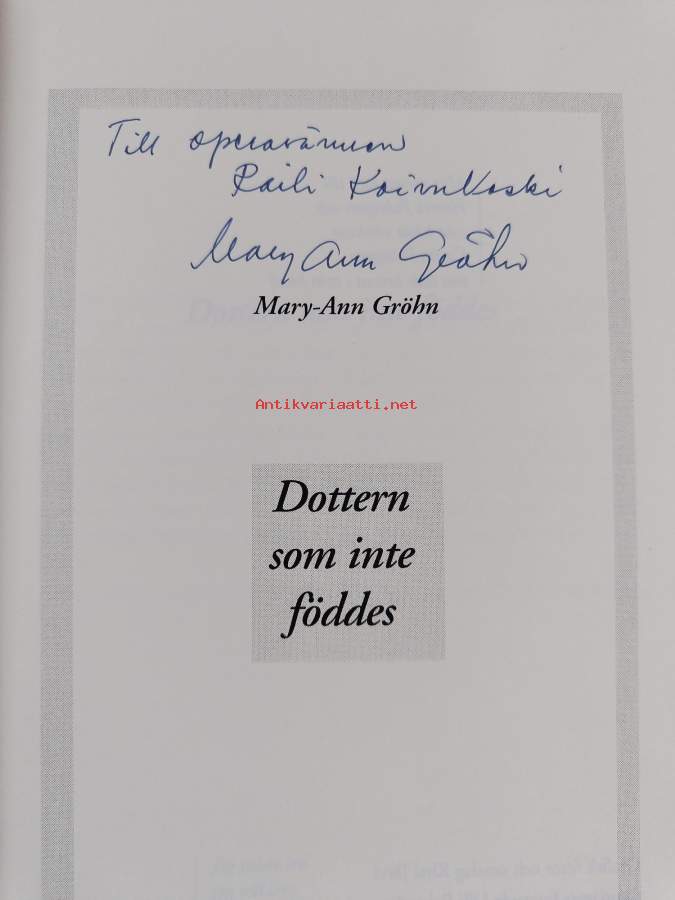 Till operavännen
Raili Koivukoski
Mary Ann Gröhn
Mary-Ann Gröhn
Antikvariaatti.net
Dottern
som inte
föddes